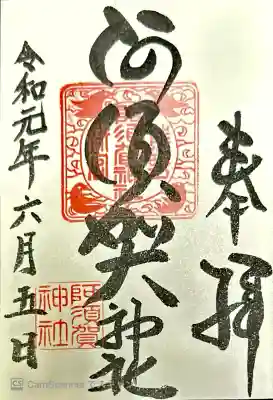 奉拝
阿須賀神社
令和元年六月五日
阿須賀
神社
CS CamScanner